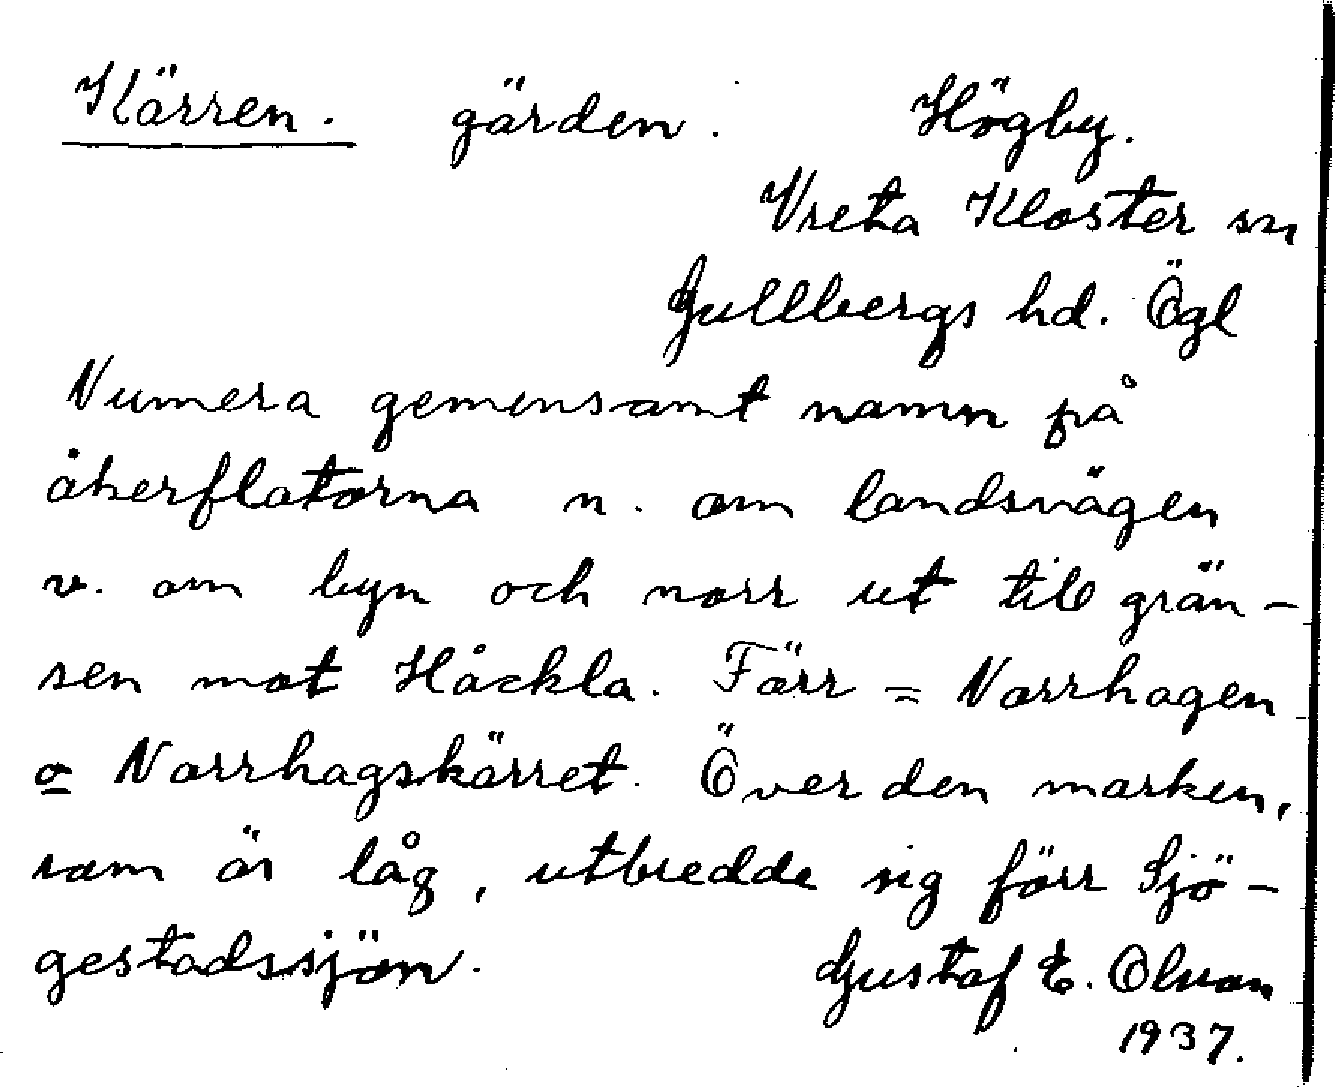 Kärren. gärden. Högby.
Vreta Kloster sn
Gullbergs hd. Ögl
Numera gemensamt namn på
åkerflatorna n. om landsvägen
v. om byn och norr ut till grän-
sen mot Håckla. Förr = Norrhagen
o Norrhagskärret. Över den marken,
som är låg, utbredde sig förr Sjö-
gestadssjön. Gustaf E. Olson
1937.